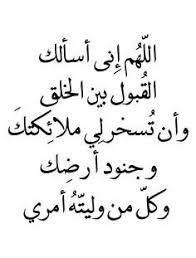 اللّهُم إنى أسألك
القُبول بين الخلق
وأن تُسخر لِي ملائِكتكَ
وجنود أرضِك
وكلّ من وليّتهُ أمري